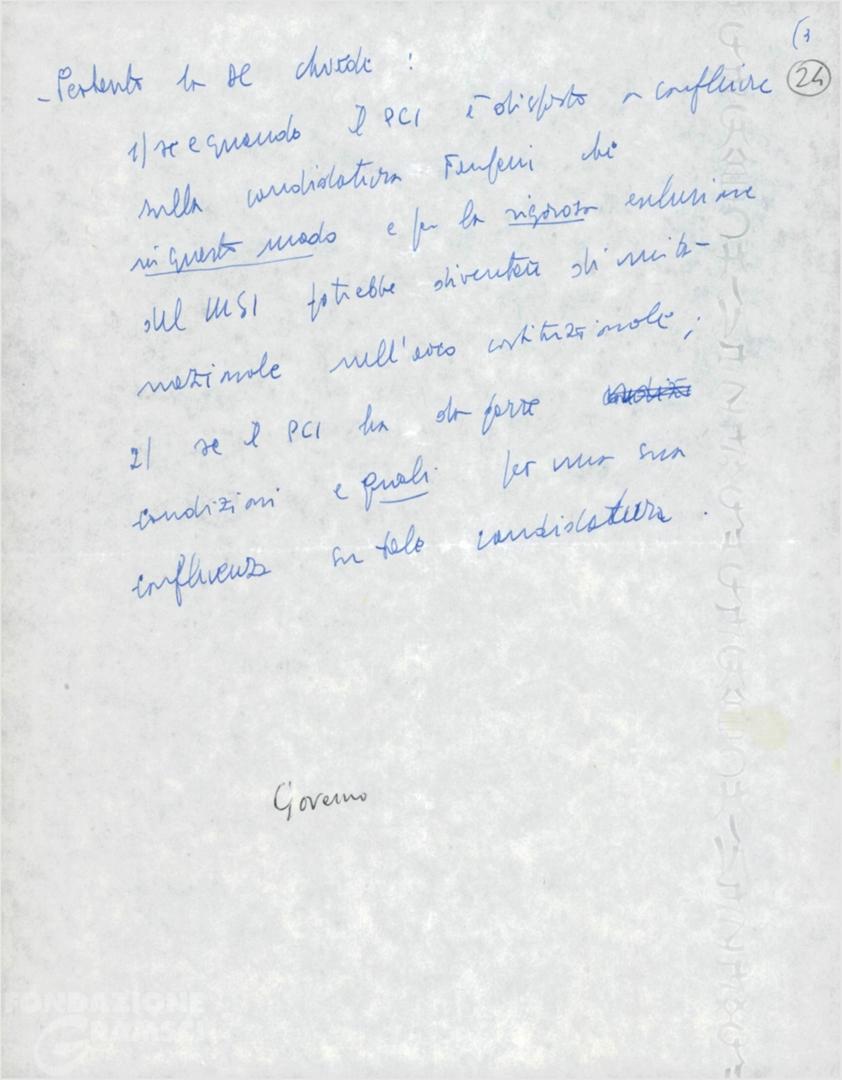 (3
24
- Pertanto la DC chiede :
1) se e quando il PCI è disposto a confluire
sulla candidatura Fanfani che
in questo modo e per la rigorosa esclusione
del MSI potrebbe diventare di unità
nazionale nell'arco costituzionale ;
2) se il PCI ha da porre
condizioni e quali per una sua
confluenza su tale candidatura .
Governo
FONDAZIONE
GRAMSCI